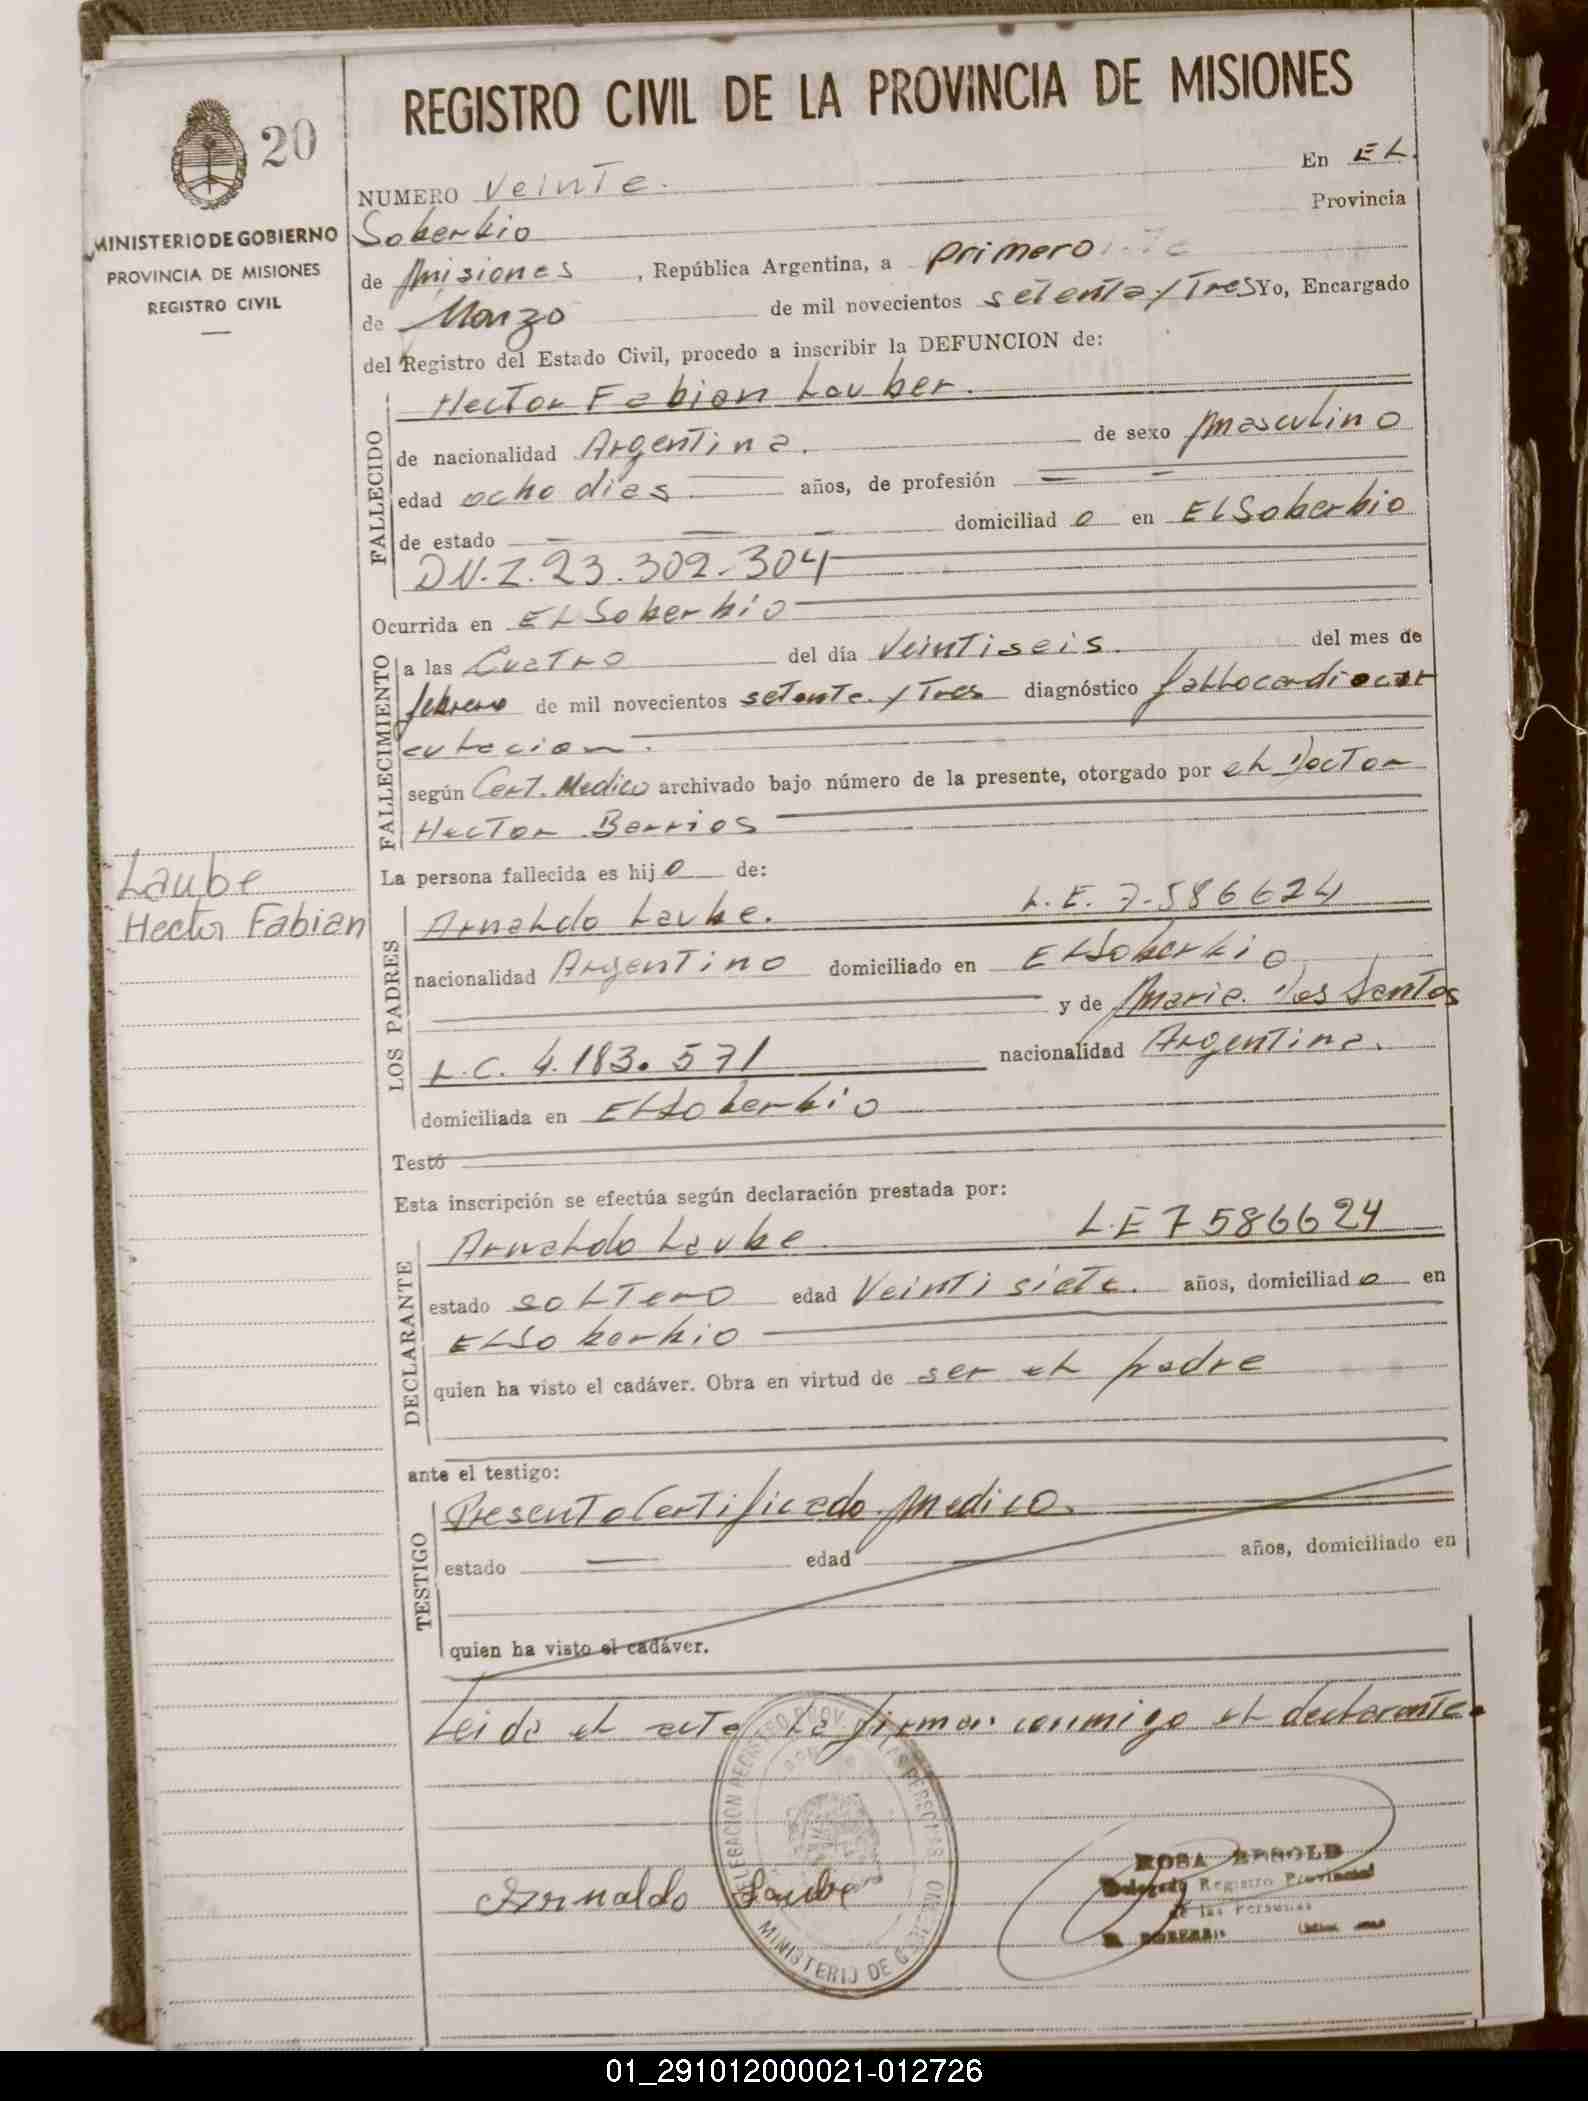 REGISTRO CIVIL DE LA PROVINCIA DE MISIONES
20
MINISTERIO DE GOBIERNO
PROVINCIA DE MISIONES
REGISTRO CIVIL
NUMERO Veinte. En EL.
Soberbio Provincia
de Misiones , República Argentina, a Primero de
de Marzo de mil novecientos setenta y Tres Yo, Encargado
del Registro del Estado Civil, procedo a inscribir la DEFUNCION de:
FALLECIDO
Hector Fabian Lauber.
de nacionalidad Argentina. de sexo masculino
edad ocho dias años, de profesión
de estado domiciliado en EL Soberbio
D.N.I. 23.302.304
Ocurrida en EL Soberbio
FALLECIMIENTO
a las Cuatro del día Veintiseis. del mes de
febrero de mil novecientos setenta y Tres diagnóstico fallo cardio cir
culacion.
según Cert. Medico archivado bajo número de la presente, otorgado por el Doctor
Hector Berrios
La persona fallecida es hijo de:
Laube
Hector Fabian
LOS PADRES
Arnaldo Laube. L.E. 7.586624
nacionalidad Argentino domiciliado en EL Soberbio
y de Maria Dos Santos
L.C. 4.183.571 nacionalidad Argentina.
domiciliada en EL Soberbio
Testó
Esta inscripción se efectúa según declaración prestada por:
DECLARANTE
Arnaldo Laube L.E 7586624
estado soltero edad Veinti siete. años, domiciliado en
EL Soberbio
quien ha visto el cadáver. Obra en virtud de ser el padre
ante el testigo:
TESTIGO
Presento Certificado Medico.
estado edad años, domiciliado en
quien ha visto el cadáver.
Leida el acta la firma conmigo el declarante.
MINISTERIO DE
Arnaldo Laube
ROSA
Delegado Registro Provincial
de las Personas
EL SOBERBIO
01_291012000021-012726